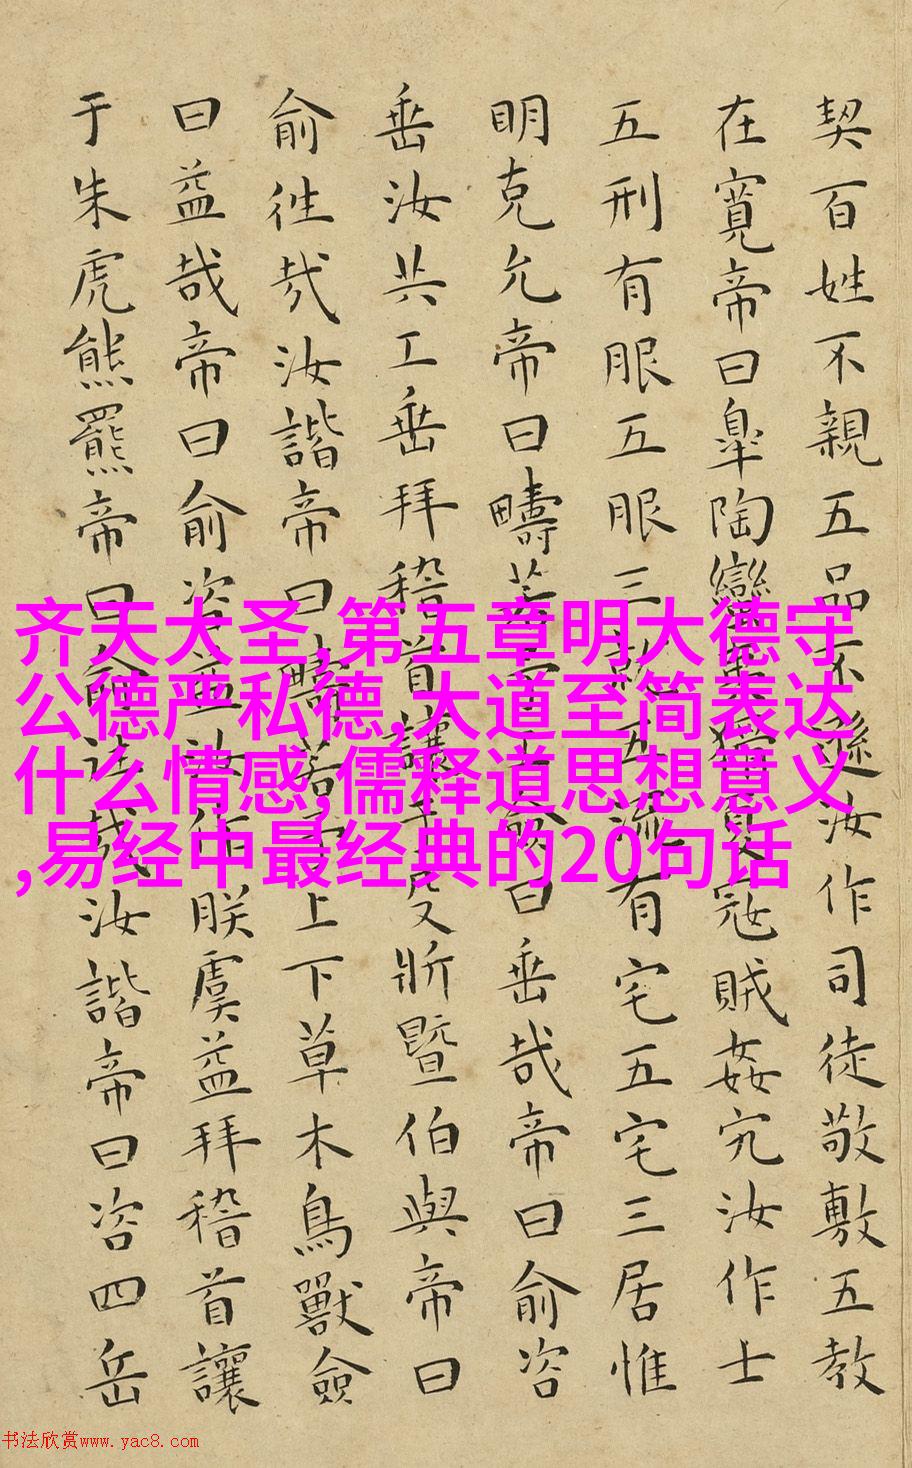 契百姓不親五品不遜汝作司徒敬敷五教
在寬帝曰臯陶蠻夷猾夏寇賊姦宄汝作士
五刑有服五服三就五流有宅五宅三居惟
明克允帝曰疇若予工僉曰垂哉帝曰俞咨
垂汝共工垂拜稽首讓于殳斨暨伯與帝曰
俞往哉汝諧帝曰疇若予上下草木鳥獸僉
曰益哉帝曰俞咨益汝作朕虞益拜稽首讓
于朱虎熊羆帝曰俞往哉汝諧帝曰咨四岳
齐天大圣,第五章明大德守
公德严私德,大道至简表达
什么情感,儒释道思想意义
,易经中最经典的20句话
书法欣赏www.yac8.com